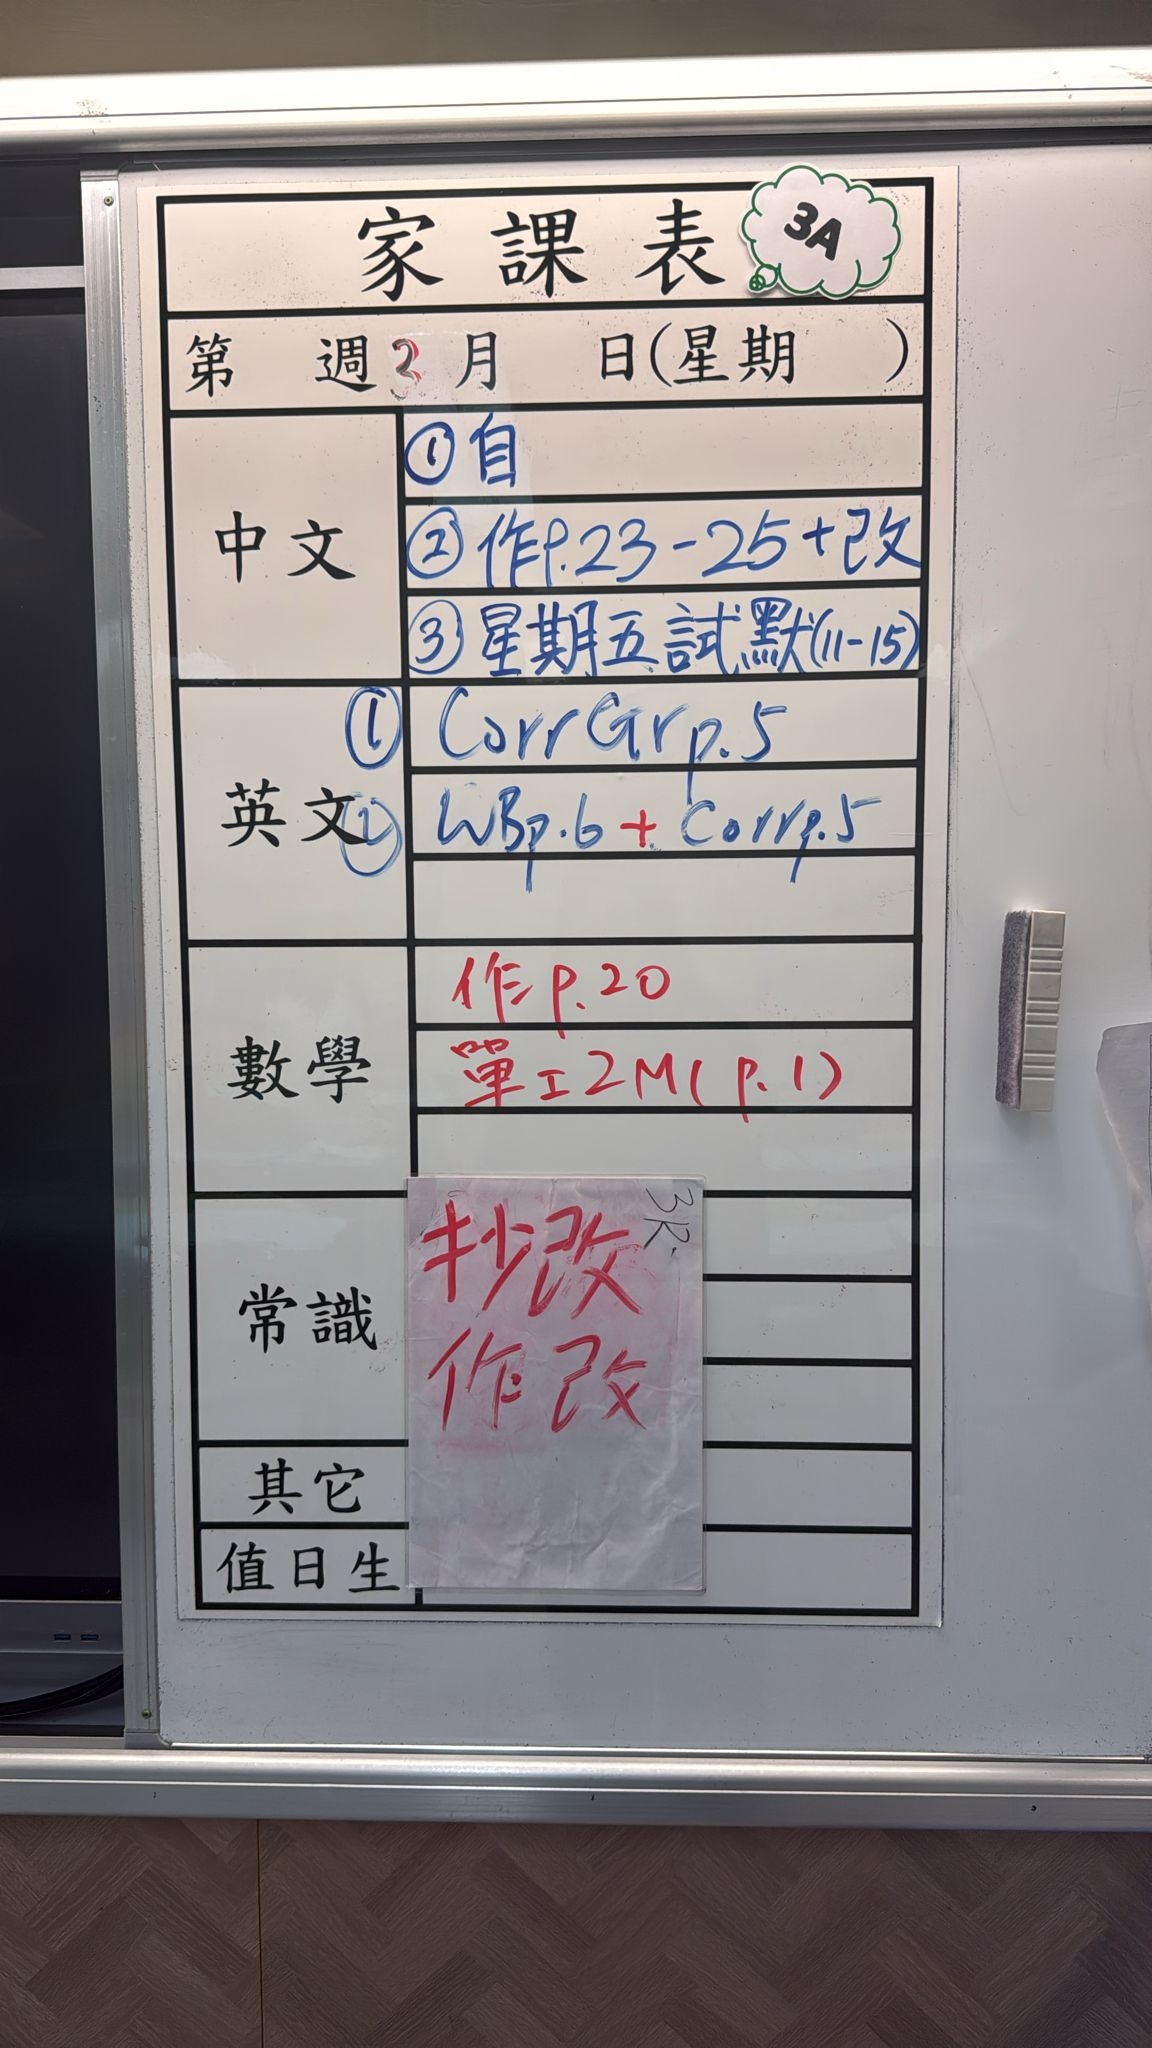 家課表 3A
第 週 月 日(星期 )
中文
①自
②作p.23-25+改
③星期五試默(11-15)
英文
① Corr Gr p.5
② WB p.6 + Corr p.5
數學
作 p.20
單工2M(p.1)
常識
抄改
作改
其它
值日生